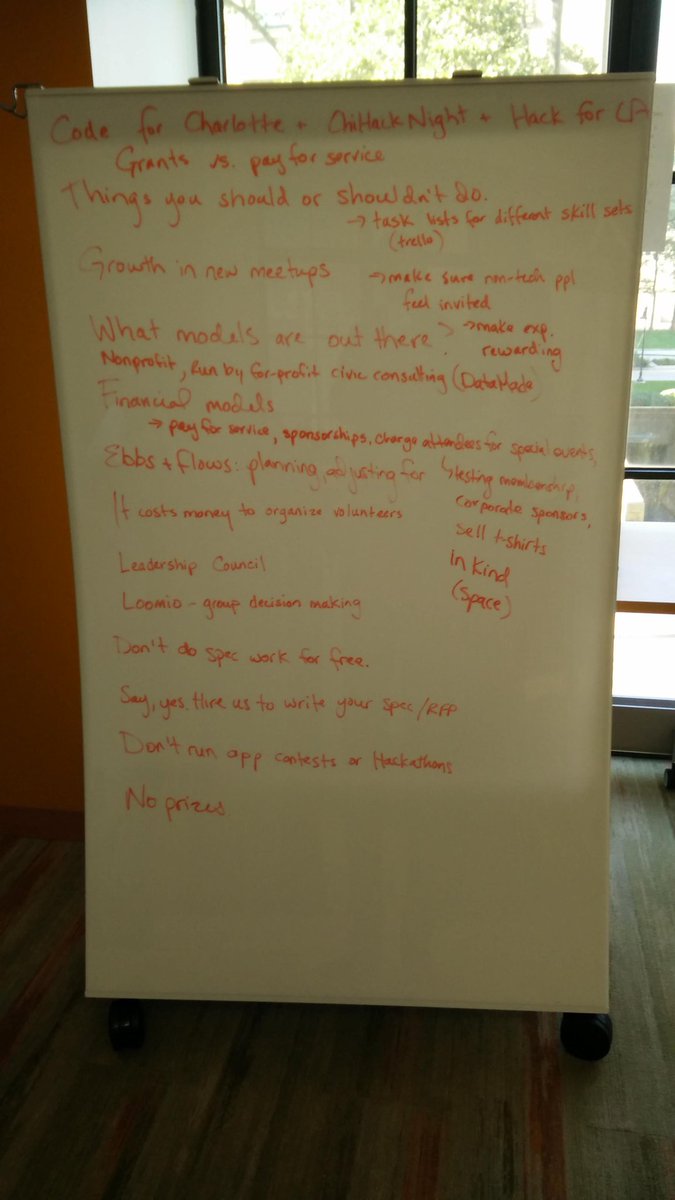 Code for Charlotte + ChiHackNight + Hack for LA
Grants vs. pay for service
Things you should or shouldn't do.
→ task lists for different skill sets
(trello)
Growth in new meetups
→ make sure non-tech ppl
feel invited
What models are out there?
→ make exp.
rewarding
Nonprofit, Run by for-profit civic consulting (DataMade)
Financial models
→ pay for service, sponsorships, charge attendees for special events,
Ebbs + flows: planning, adjusting for
↳ testing membership,
corporate sponsors,
It costs money to organize volunteers
sell t-shirts
Leadership Council
in kind
(space)
Loomio - group decision making
Don't do spec work for free.
Say, yes. Hire us to write your spec/RFP
Don't run app contests or Hackathons
No prizes